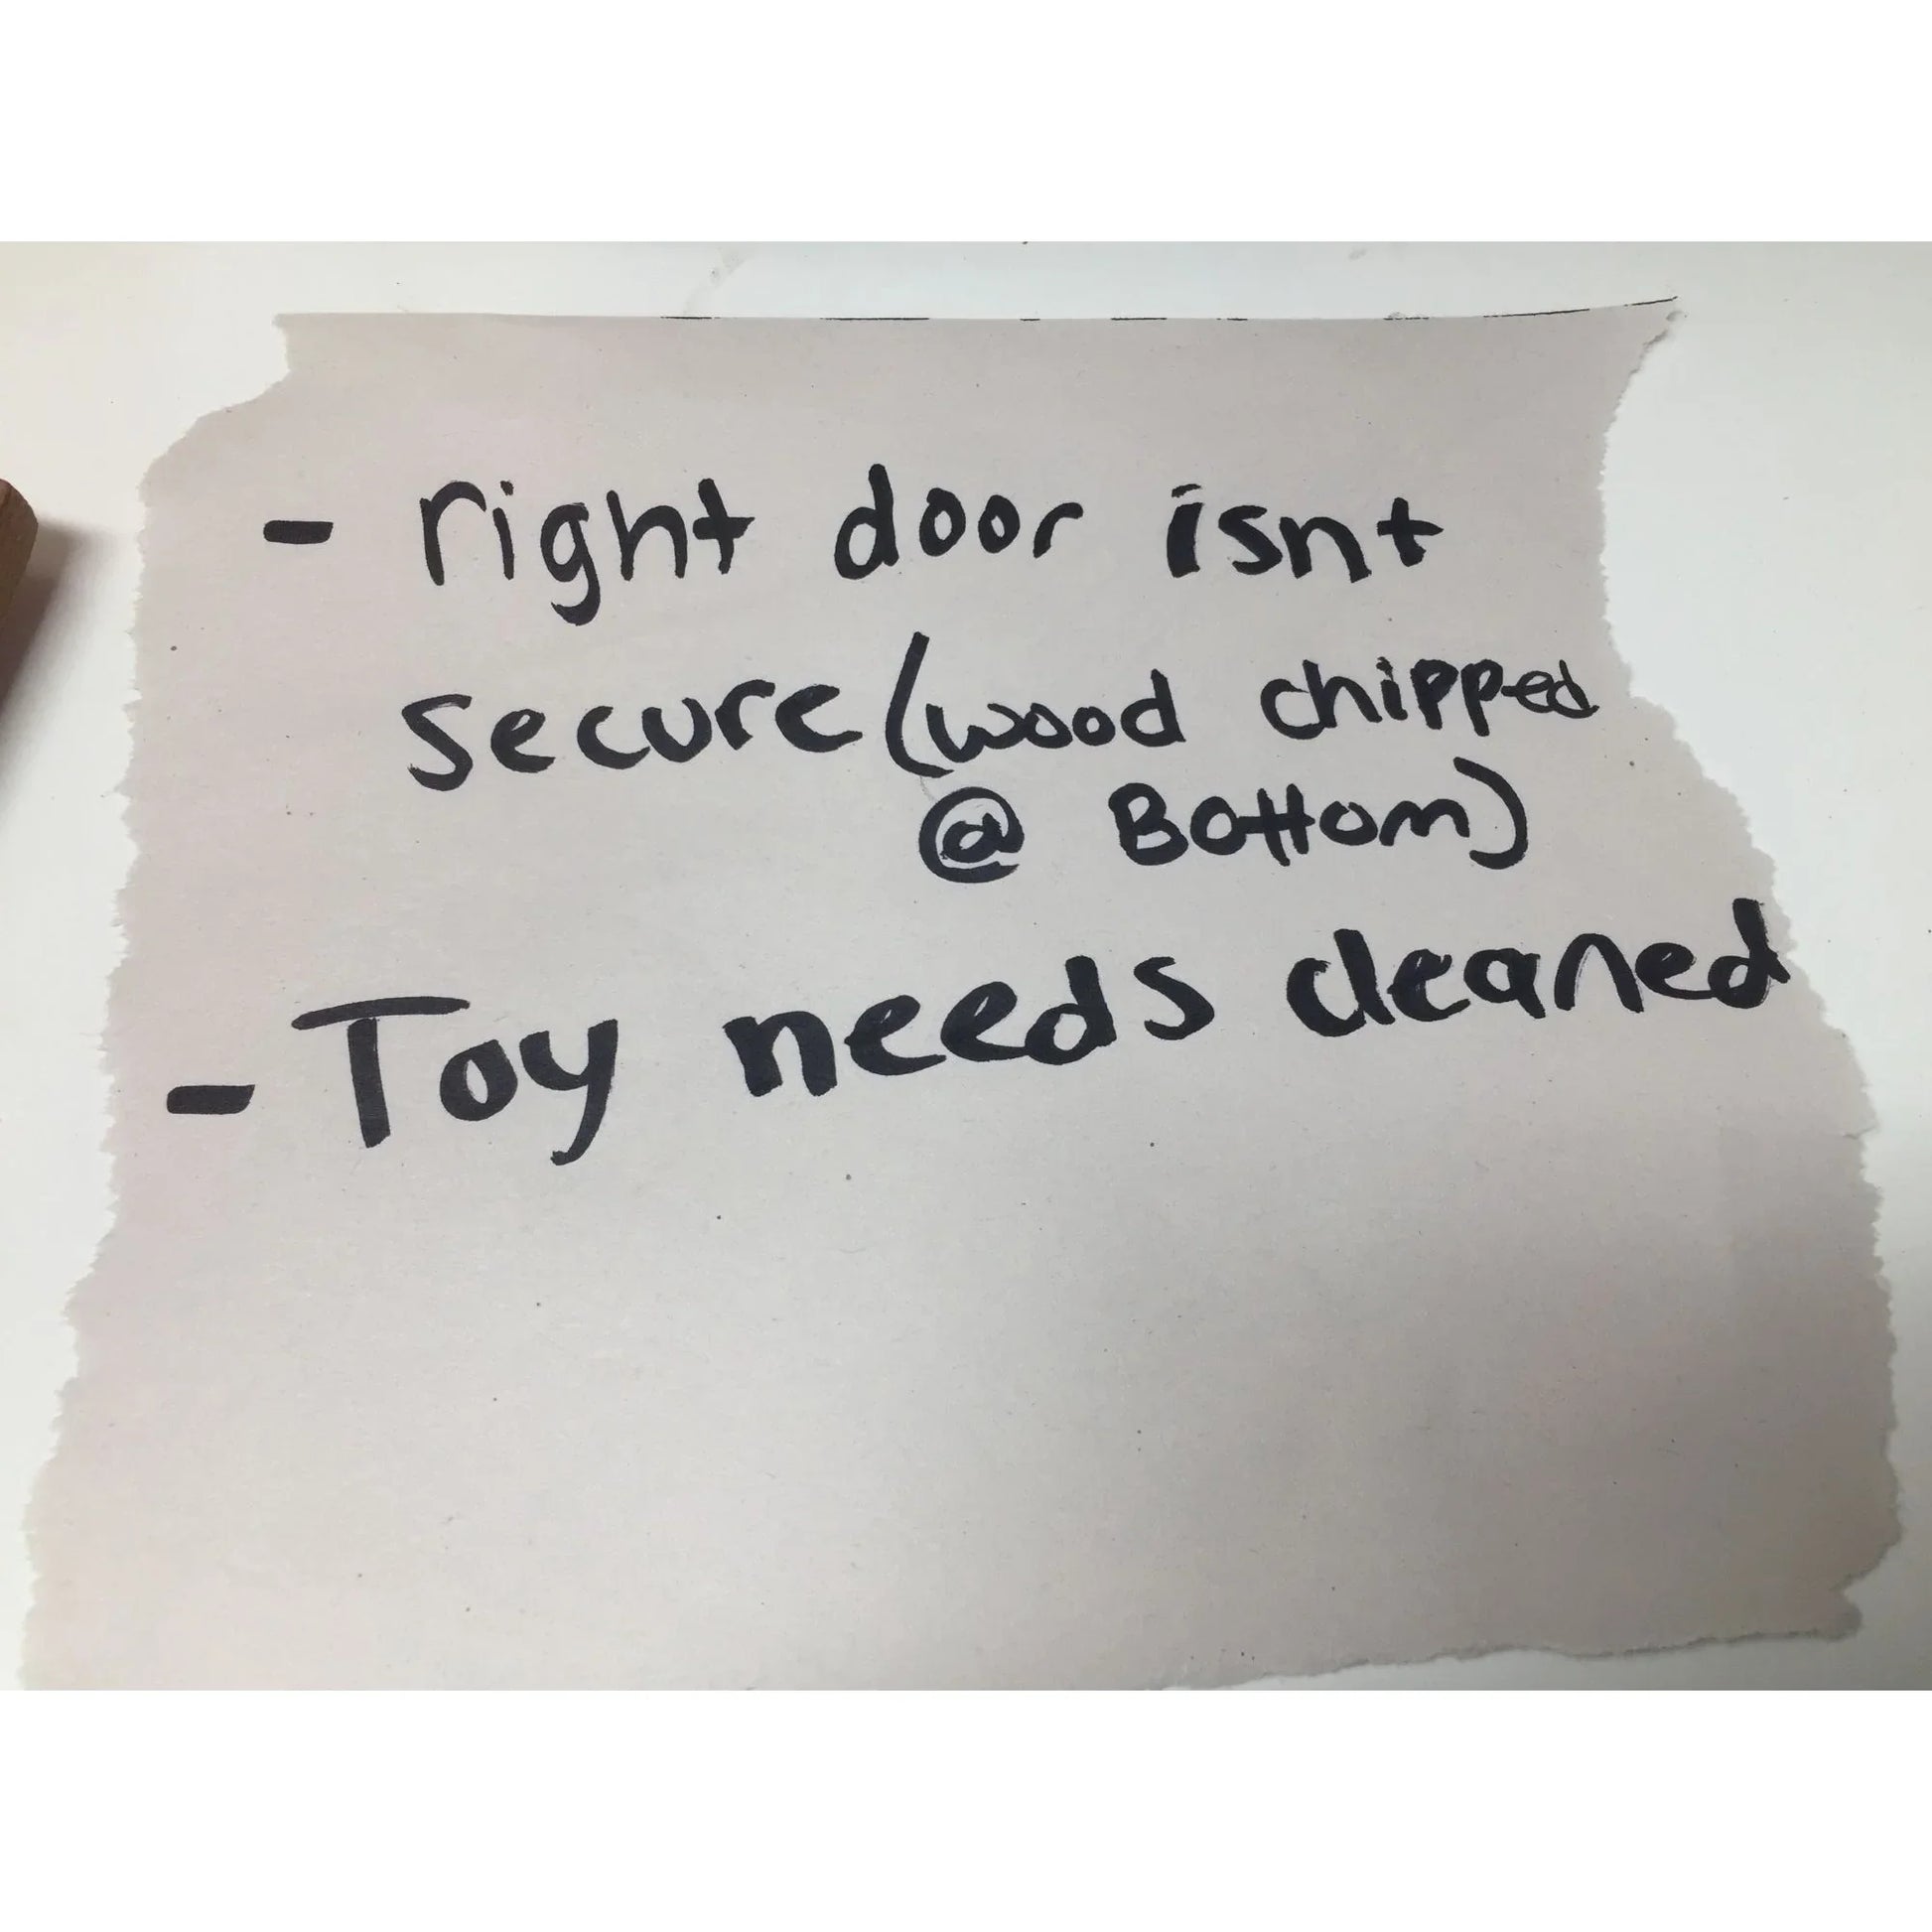 - right door isnt
secure (wood chipped
@ Bottom)
- Toy needs cleaned